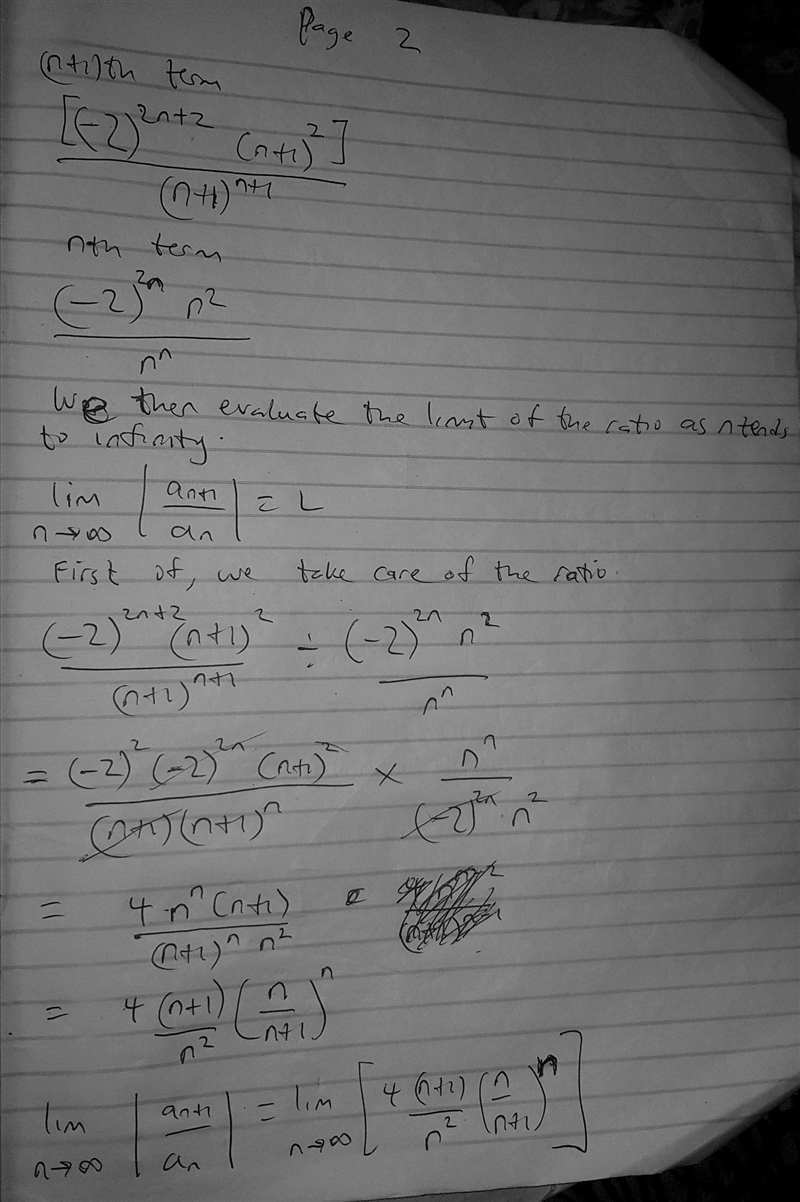 Page 2
(n+1)th term
[(-2)^{2n+2} (n+1)^2] / (n+1)^{n+1}
nth term
(-2)^{2n} n^2 / n^n
We then evaluate the limit of the ratio as n tends
to infinity.
lim n→∞ |a_{n+1} / a_n| = L
First of, we take care of the ratio.
(-2)^{2n+2} (n+1)^2 / (n+1)^{n+1} ÷ (-2)^{2n} n^2 / n^n
= (-2)^2 (-2)^{2n} (n+1)^2 / (n+1)(n+1)^n × n^n / (-2)^{2n} · n^2
= 4 · n^n (n+1) / (n+1)^n n^2
= 4 (n+1) / n^2 (n / n+1)^n
lim n→∞ |a_{n+1} / a_n| = lim n→∞ [4 (n+1) / n^2 (n / n+1)^n]